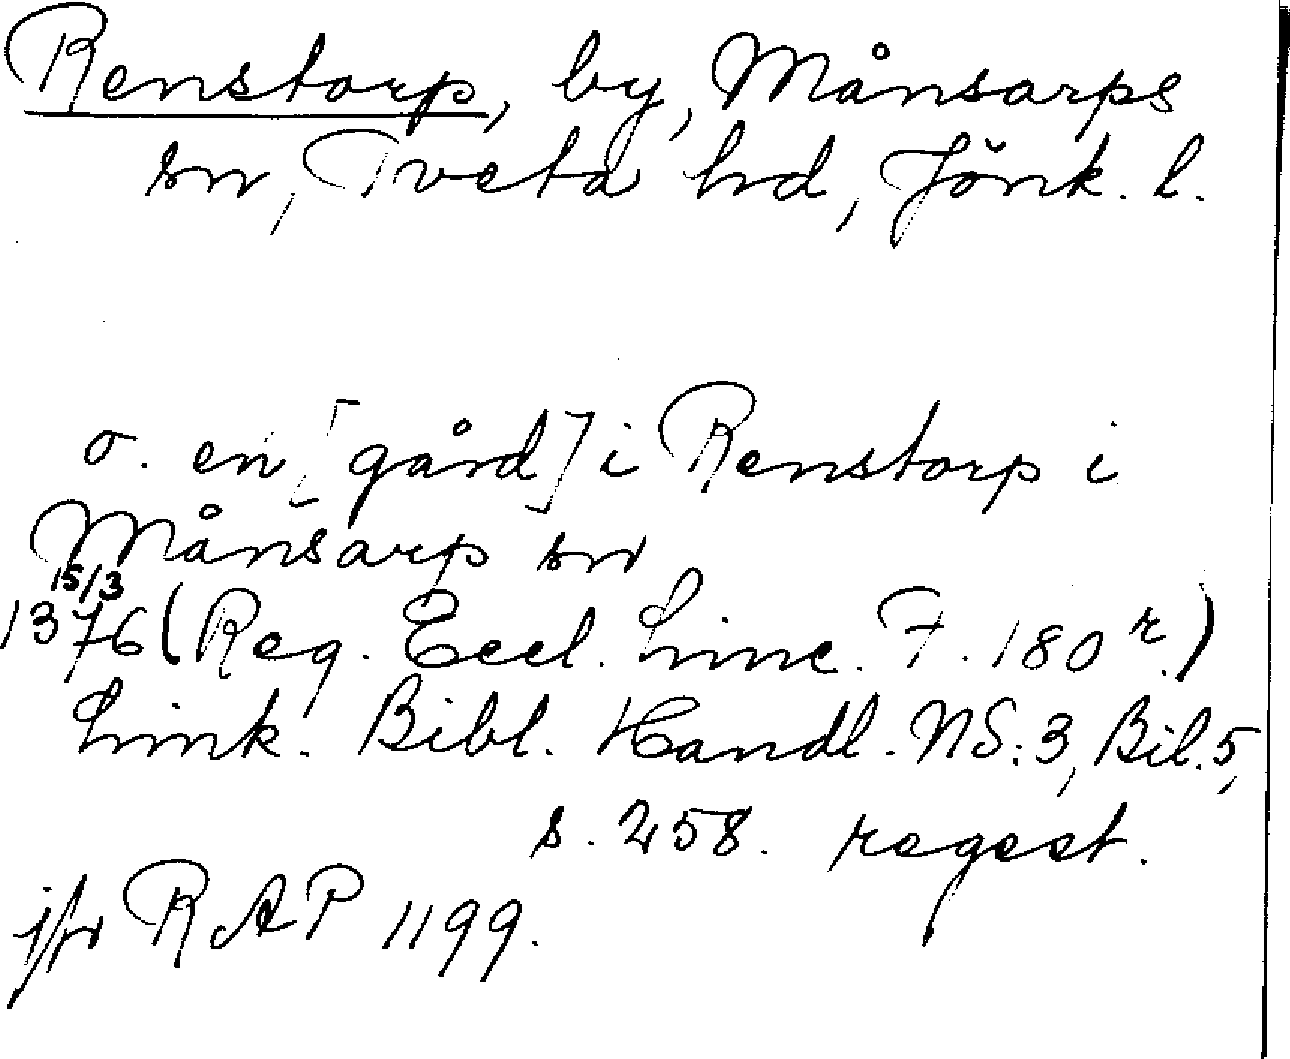 Renstorp, by, Månsarps
sn, Tveta hd, Jönk. l.
o. en [gård] i Renstorp i
Månsarp sn
15/3
1376 (Reg. Eccl. Linc. F. 180 r.)
Link. Bibl. Handl. NS:3, Bil.5,
s. 258. regest.
jfr RAP 1199.